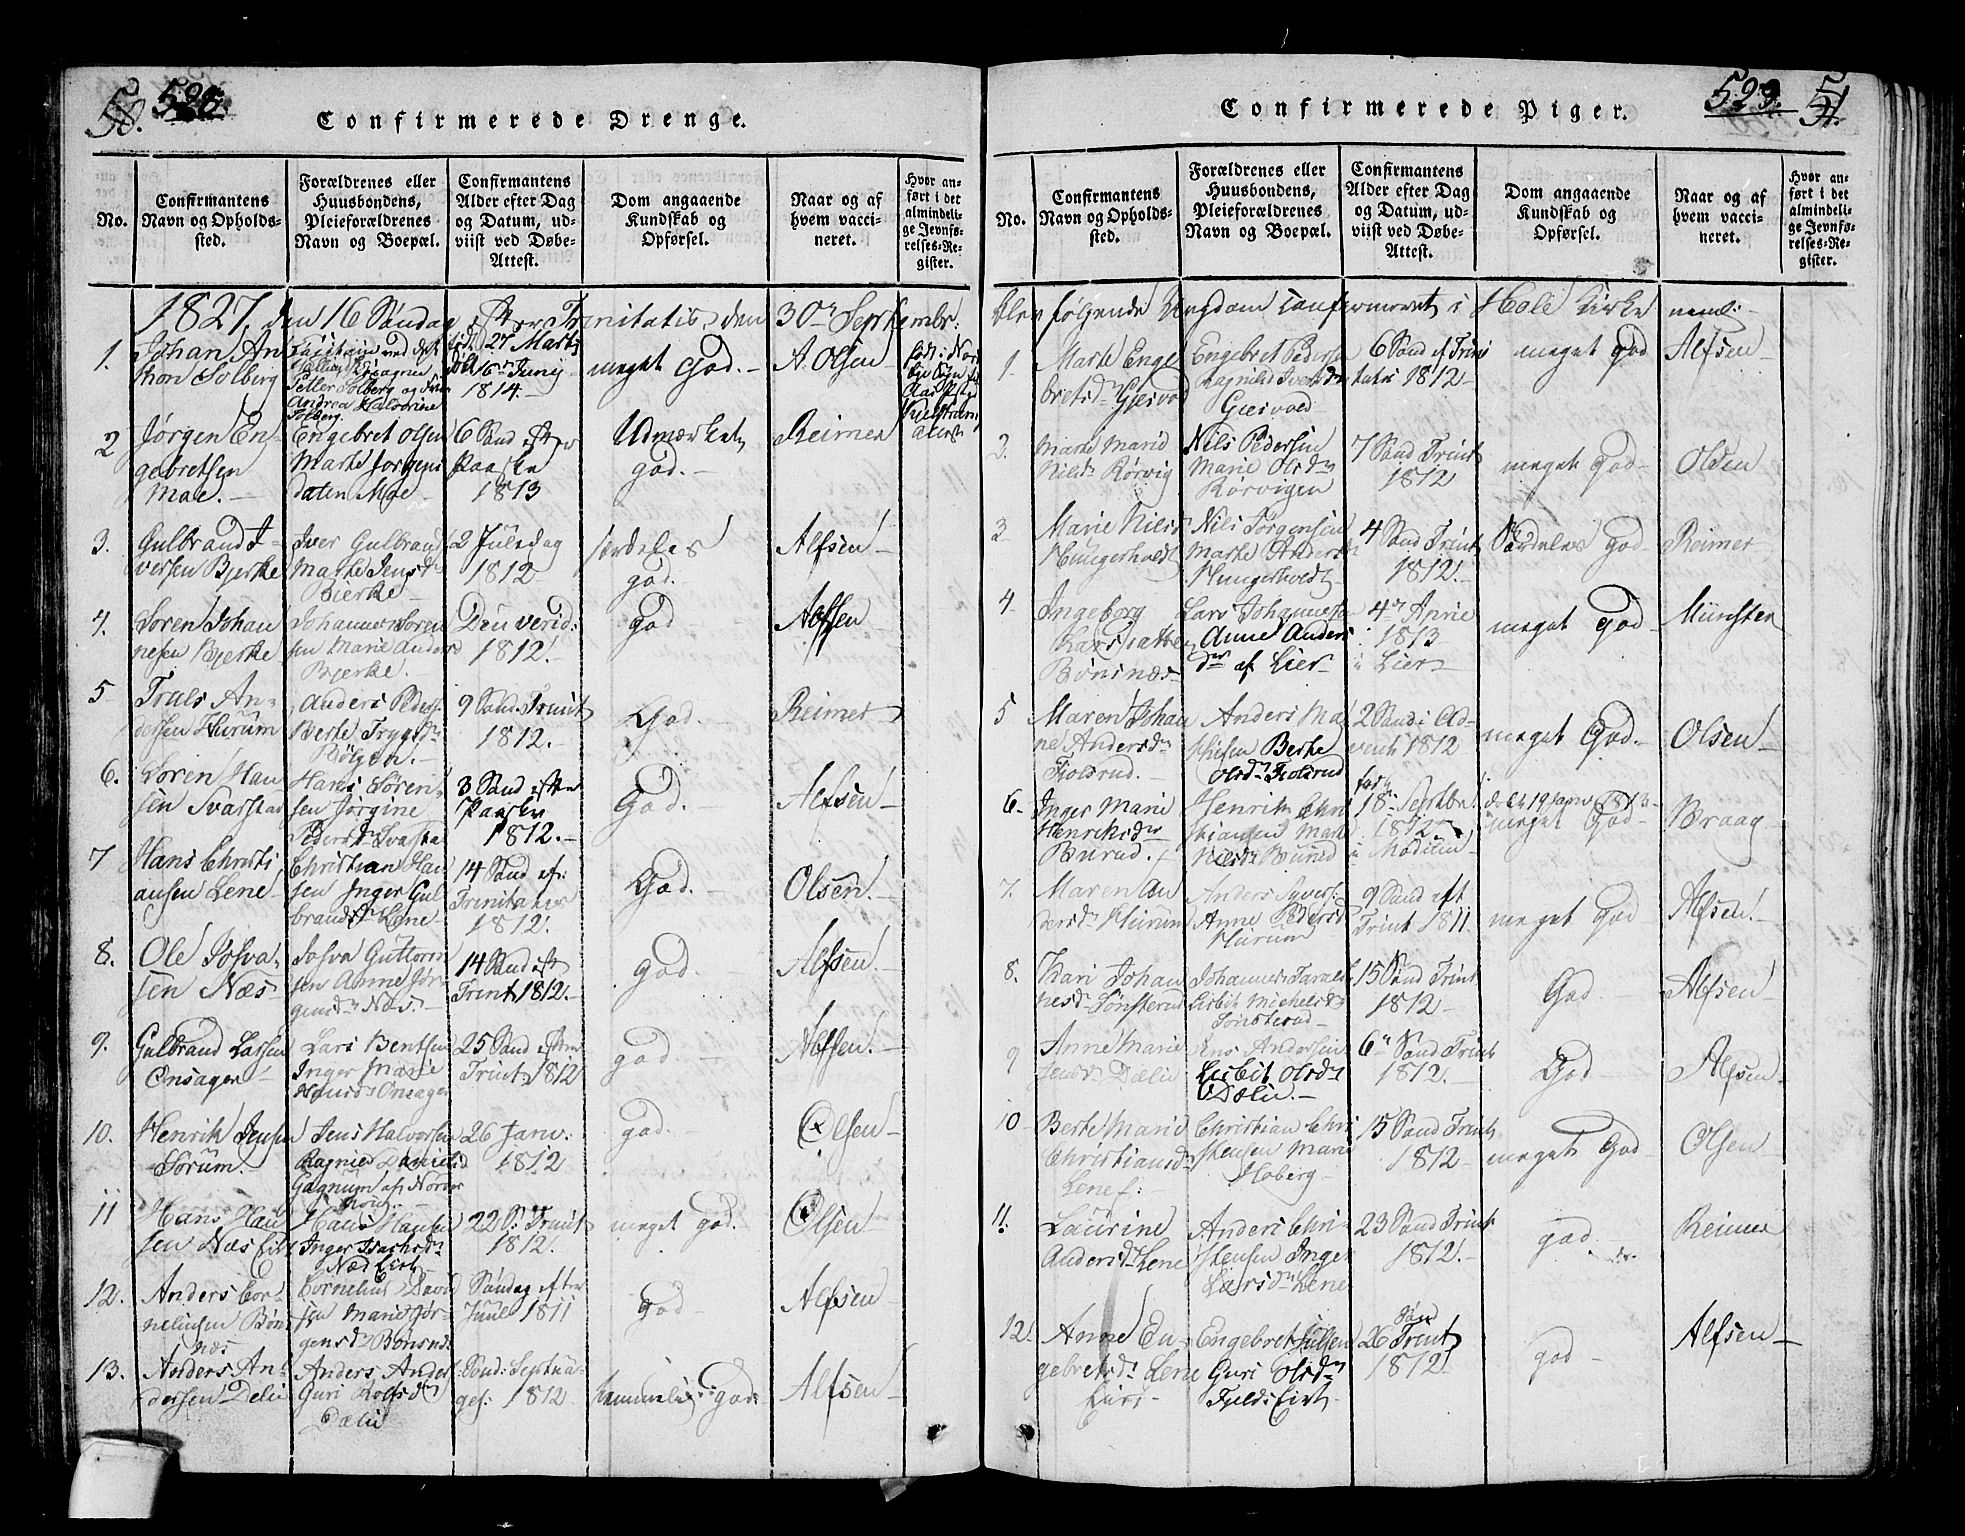 50. 528.
Confirmerede Drenge.
No.
Confirmantens
Navn og Opholds-
sted.
Forældrenes eller
Huusbondens,
Pleieforældrenes
Navn og Boepæl.
Confirmantens
Alder efter Dag
og Datum, ud-
viist ved Døbe-
Attest.
Dom angaaende
Kundskab og
Opførsel.
Naar og af
hvem vacci-
neret.
Hvor an-
ført i det
almindeli-
ge Jevnfø-
relses-Re-
gister.
1827 den 16 Søndag efter Trinitatis den 30te Septembr:
1.
Johan An
thon Solberg
Petter Solberg og
Andrea Halvorine
Solberg
27 Marts
16 Junij
1814.
meget god.
A. Olsen
2
Jørgen En
gebretsen
Moe.
Engebret Olsen
Marte Jørgens
daten Moe
6 Sønd efter
Paaske
1813
Udmærket
god.
Reimer
3.
Gulbrand I-
versen Bjerke
Iver Gulbrand
Marte Jensdr
Bjerke
2 Juledag
1812
særdeles
god.
Alfsen
4.
Søren Johan
nesen Bjerke
Johannes Søren
sen Marie Anders
Bjerke
1812.
God
Alfsen
5
Truls An-
dersen Hurum
Anders Peders:
Berte Trygsdr
9 Sønd. Trinit
1812.
God.
Reimer
6.
Søren Han
sen Svarstad
Hans Søren
sen Jørgine
Pedersdr Svarsta
3 Sønd efter
Paaske
1812.
God.
Alfsen
7
Hans Christi
ansen Lene
Christian Han
sen Inger Gul
brandsdr Lene
14 Sønd ef:
Trinitatis
1812.
God.
Olsen.
8.
Ole Josva
sen Næs
Josva Guttorm
sen Anne Jør
gensdr Næs.
14 Sønd eft
Trinit 1812.
god.
Alfsen.
9.
Gulbrand Larsen
Onsager
Lars Bentsen
Inger Marie
Onsager
25 Sønd efter
Trinit 1812
god
Alfsen.
10.
Henrik Jensen
Sørum.
Jens Halvorsen
Ragnild Daniels
Gagnum af Norder
houg.
26 Janv:
1812
god.
Olsen
11
Hans Han
sen Næs Eie
Hans Hansen
Inger Isachsdr
Næs Eie
22 S. Trinit
1812.
meget god.
Olsen
12.
Anders Cor-
neliusen Bøn
næs
Cornelius David
sen Marie Jør-
gensdr Bønsnæs
Søndag efter
Juul 1811
God
Alfsen
13.
Anders An-
dersen Dælie
Anders Anders
Guri Rolfsdr
Dælie
Sønd: Septua-
ges: 1812
temmelig god
Alfsen
Confirmerede Piger.
529. 51.
No.
Confirmantens
Navn og Opholds-
sted.
Forældrenes eller
Huusbondens,
Pleieforældrenes
Navn og Boepæl.
Confirmantens
Alder efter Dag
og Datum, ud-
viist ved Døbe-
Attest.
Dom angaaende
Kundskab og
Opførsel.
Naar og af
hvem vacci-
neret.
Hvor an-
ført i det
almindeli-
ge Jevnfø-
relses-Re-
gister.
blev følgende Ungdom confirmeret i Hole Kirke neml:
1
Marte Enge
bretsdr Gjesvold
Engebret Pedersen
Ragnild Iversdr
Giesvold
6 Sønd ef Trini
tatis 1812
meget god
Alfsen
2.
Marte Marie
Nilsdr Rørvig
Nils Pedersen
Marie Olsdr
Rørvigen
7 Sønd Trinit
1812
meget God
Olsen
3
Marie Nilsd
Hungerholdt
Nils Jørgensen
Marte Andersd
Hungerholdt
4 Sønd Trinit
1812.
Særdeles God
Reimer
4
Ingeborg
Larsdatter
Bønsnæs
Lars Johannesen
Anne Anders
dr af Lier
4de
1813
i Lier
meget god
Münster
5
Maren Johan
ne Andersdr
Fjoldsrud.
Anders Ma
thisen Berte
Olsdr Fjoldsrud
2 Sønd i Ad-
vent 1812
meget God.
Olsen
6.
Inger Marie
Henriksdr
Burud.
Henrik Chri
stiansen Marte
Nilsdr Burud
18de Septbr
1812
i Modum
døbt 19 Janv 1813
meget God
Braag
7.
Maren An
dersdr Hurum
Anders Syvers:
Anne Pedersd
Hurum
9 Sønd eft
Trinit 1811.
meget god
Alfsen.
8.
Kari Johan
nesdr Sønsterud
Johannes Tarald
Lisbet Michelsdr
Sønsterud
15 Sønd Trinit
1812
God
Alfsen
9
Anne Marie
Jensdr Dælie
Jens Andersen
Lisbet Olsdr
Dælie.
6te Sønd Trinit
1812.
God
Alfsen
10
Berte Marie
Christiansdr
Lene f:
Christian Chri
stensen Marie
Hoberg
15 Sønd Trinit
1812
meget God
Olsen
11.
Laurine
Andersdr Lene
Anders Chri-
stensen Inger
Larsdr Lene
23 Sønd Trinit
1812.
god.
Reimer
12.
Anne En-
gebretsdr Lene
Eie
Engebret
Guri Olsdr
Sønd
26 Trinit
1812.
god
Alfsen